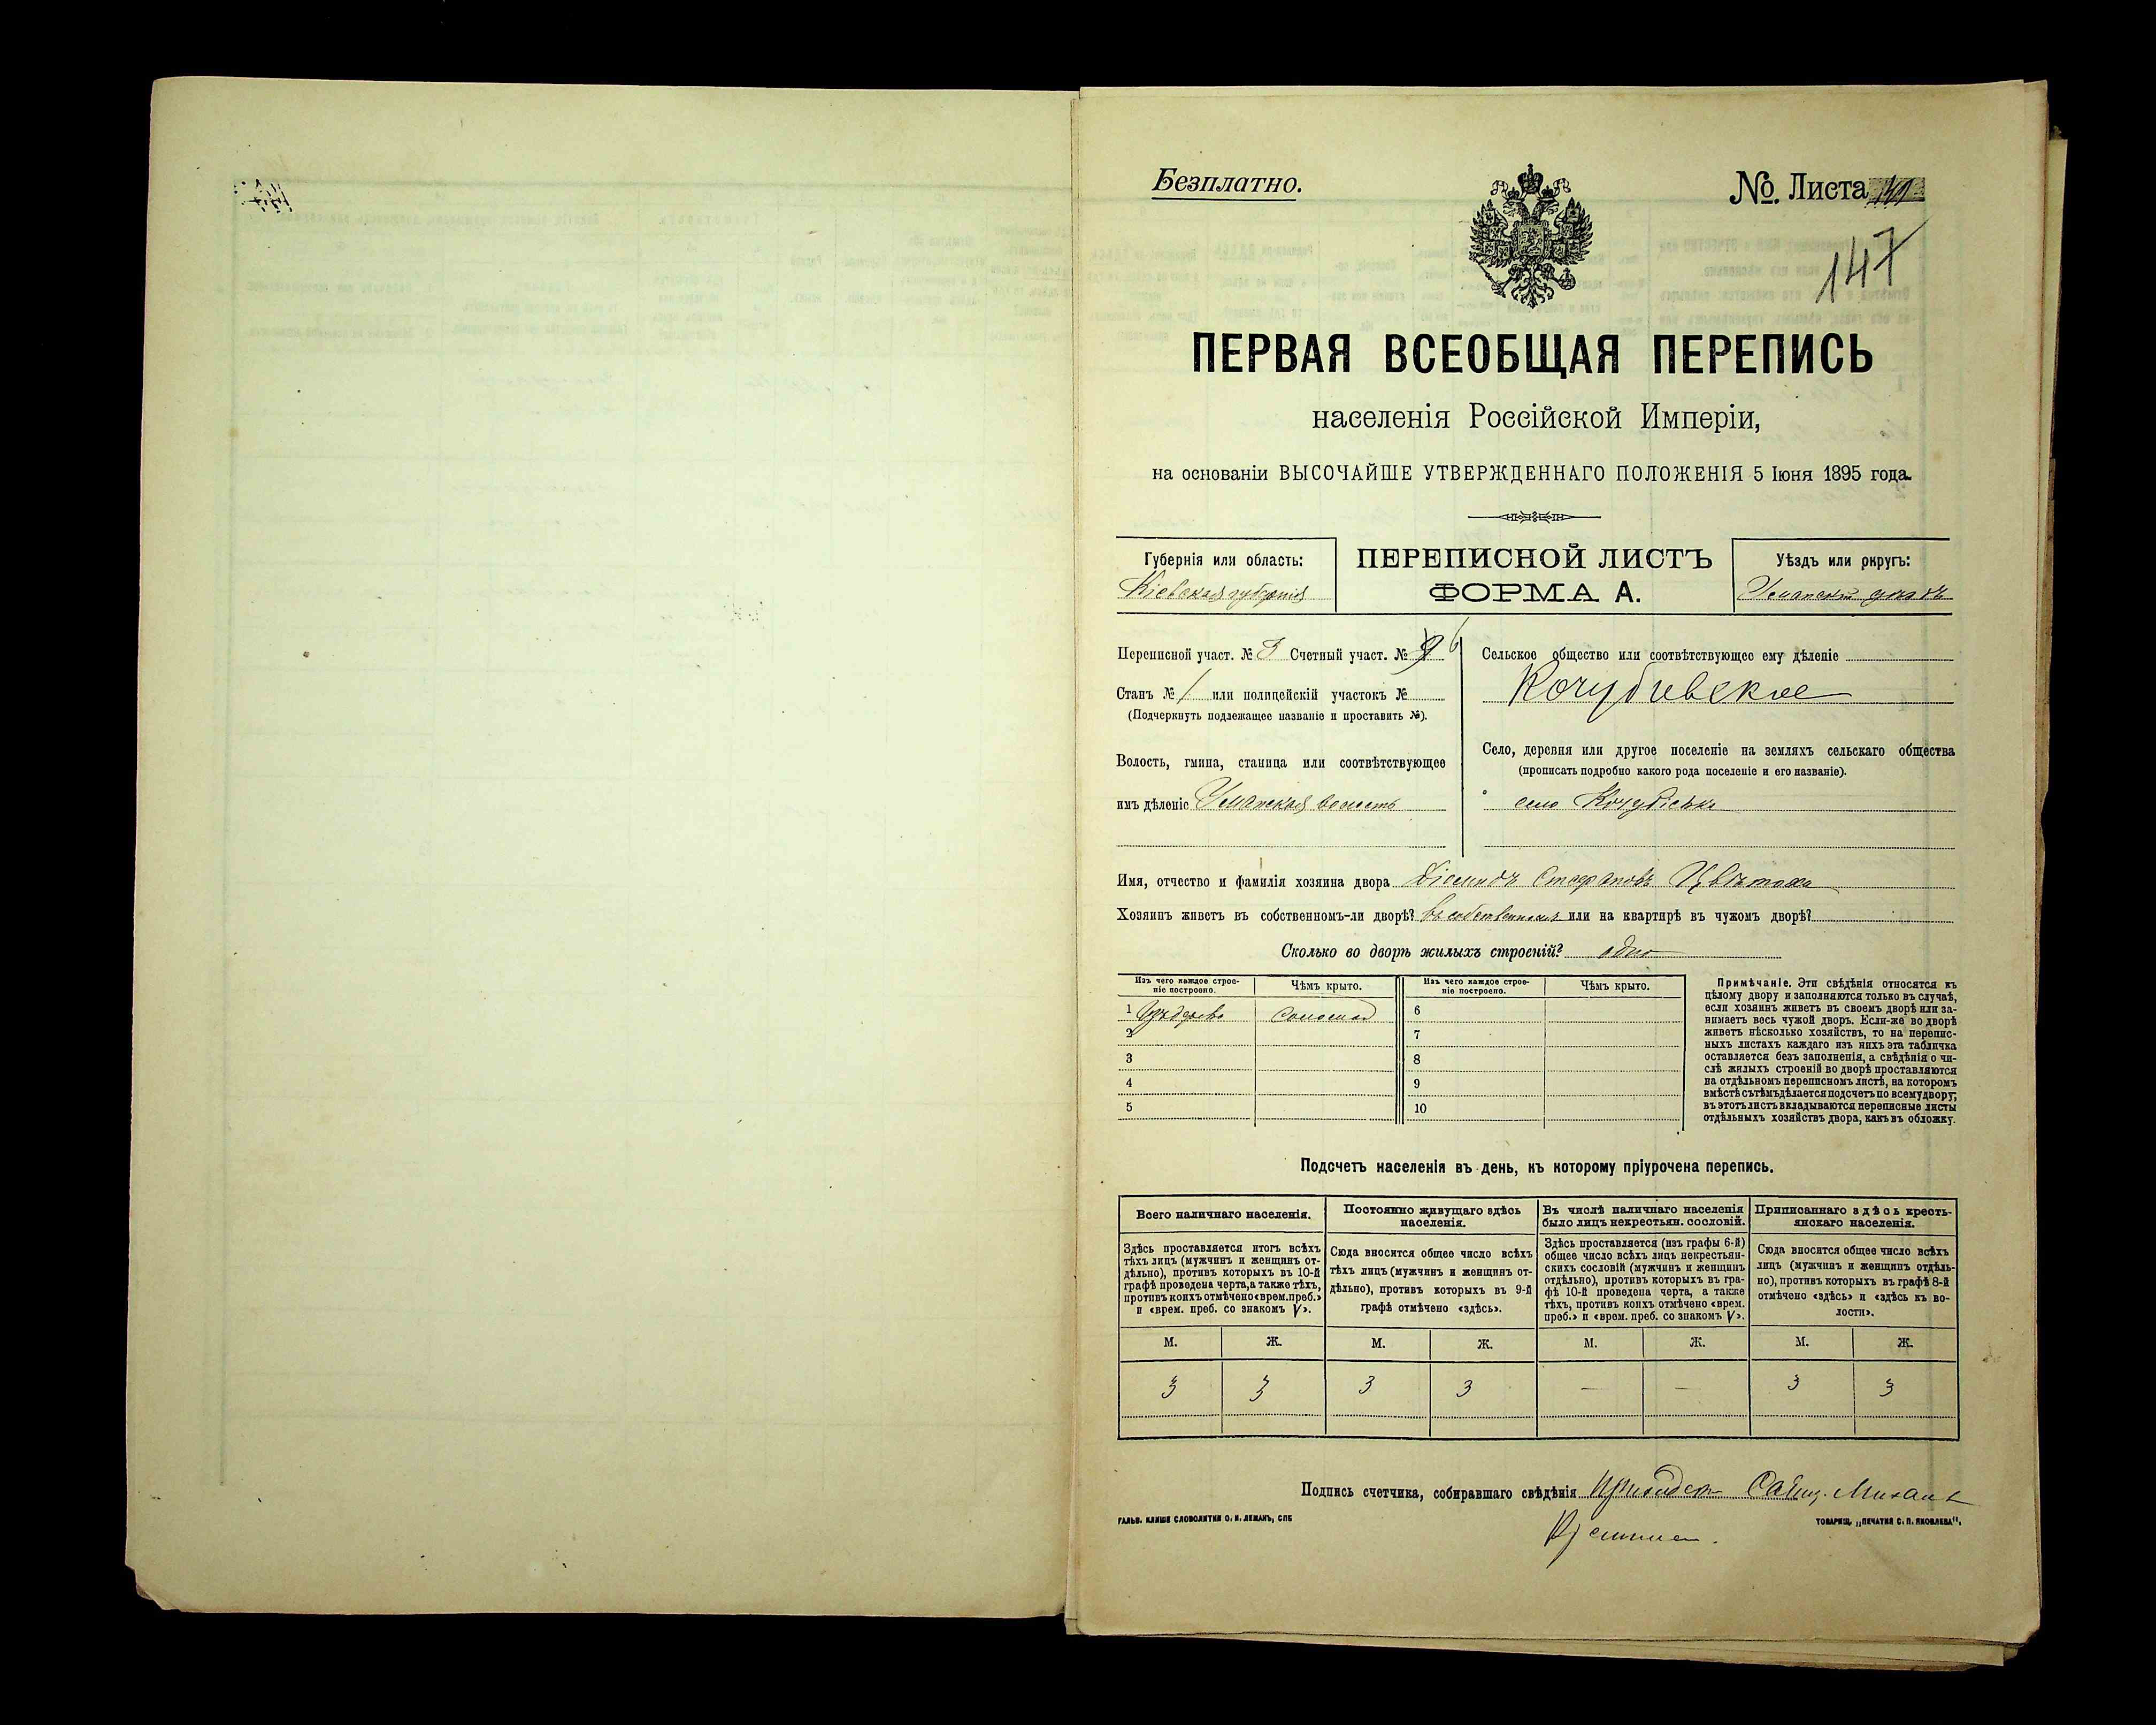 Безплатно.
№. Листа
147
ПЕРВАЯ ВСЕОБЩАЯ ПЕРЕПИСЬ
населенія Россійской Имперіи,
на основаніи ВЫСОЧАЙШЕ УТВЕРЖДЕННАГО ПОЛОЖЕНІЯ 5 Іюня 1895 года.
Губернія или область:
Кіевская губернія
ПЕРЕПИСНОЙ ЛИСТЪ
ФОРМА А.
Уѣздъ или округъ:
Уманскій уѣздъ
Переписной участ. № 3 Счетный участ. № 6
Станъ № 1 или полицейскій участокъ №
(Подчеркнуть подлежащее названіе и проставить №).
Волость, гмина, станица или соотвѣтствующее
имъ дѣленіе Уманская волость
Сельское общество или соотвѣтствующее ему дѣленіе
Кочубіевское
Село, деревня или другое поселеніе на земляхъ сельскаго общества
(прописать подробно какого рода поселеніе и его названіе).
село Кочубіевка
Имя, отчество и фамилія хозяина двора Стефановъ
Хозяинъ живетъ въ собственномъ-ли дворѣ? въ собственномъ или на квартирѣ въ чужомъ дворѣ?
Сколько во дворѣ жилыхъ строеній? одно
Изъ чего каждое строе-
ніе построено.
Чѣмъ крыто.
Изъ чего каждое строе-
ніе построено.
Чѣмъ крыто.
1 Изъ дерева соломой 6
2 7
3 8
4 9
5 10
Примѣчаніе. Эти свѣдѣнія относятся къ
цѣлому двору и заполняются только въ случаѣ,
если хозяинъ живетъ въ своемъ дворѣ или за-
нимаетъ весь чужой дворъ. Если-же во дворѣ
живетъ нѣсколько хозяйствъ, то на перепис-
ныхъ листахъ каждаго изъ нихъ эта табличка
оставляется безъ заполненія, а свѣдѣнія о чи-
слѣ жилыхъ строеній во дворѣ проставляются
на отдѣльномъ переписномъ листѣ, на которомъ
вмѣстѣ съ тѣмъ дѣлается подсчетъ по всему двору;
въ этотъ листъ вкладываются переписные листы
отдѣльныхъ хозяйствъ двора, какъ въ обложку.
Подсчетъ населенія въ день, къ которому пріурочена перепись.
Всего наличнаго населенія.
Здѣсь проставляется итогъ всѣхъ
тѣхъ лицъ (мужчинъ и женщинъ от-
дѣльно), противъ которыхъ въ 10-й
графѣ проведена черта, а также тѣхъ,
противъ коихъ отмѣчено «врем. преб.»
и «врем. преб. со знакомъ V».
Постоянно живущаго здѣсь
населенія.
Сюда вносится общее число всѣхъ
тѣхъ лицъ (мужчинъ и женщинъ от-
дѣльно), противъ которыхъ въ 9-й
графѣ отмѣчено «здѣсь».
Въ числѣ наличнаго населенія
было лицъ некрестьян. сословій.
Здѣсь проставляется (изъ графы 6-й)
общее число всѣхъ лицъ некрестьян-
скихъ сословій (мужчинъ и женщинъ
отдѣльно), противъ которыхъ въ гра-
фѣ 10-й проведена черта, а также
тѣхъ, противъ коихъ отмѣчено «врем.
преб.» и «врем. преб. со знакомъ V».
Приписаннаго здѣсь кресть-
янскаго населенія.
Сюда вносится общее число всѣхъ
лицъ (мужчинъ и женщинъ отдѣль-
но), противъ которыхъ въ графѣ 8-й
отмѣчено «здѣсь» и «здѣсь къ во-
лости».
М. Ж. М. Ж. М. Ж. М. Ж.
3 3 3 3 — — 3 3
Подпись счетчика, собиравшаго свѣдѣнія
ГАЛЬВ. КЛИШЕ СЛОВОЛИТНИ О. И. ЛЕМАНЪ, СПБ
ТОВАРИЩ. „ПЕЧАТНЯ С. П. ЯКОВЛЕВА“.